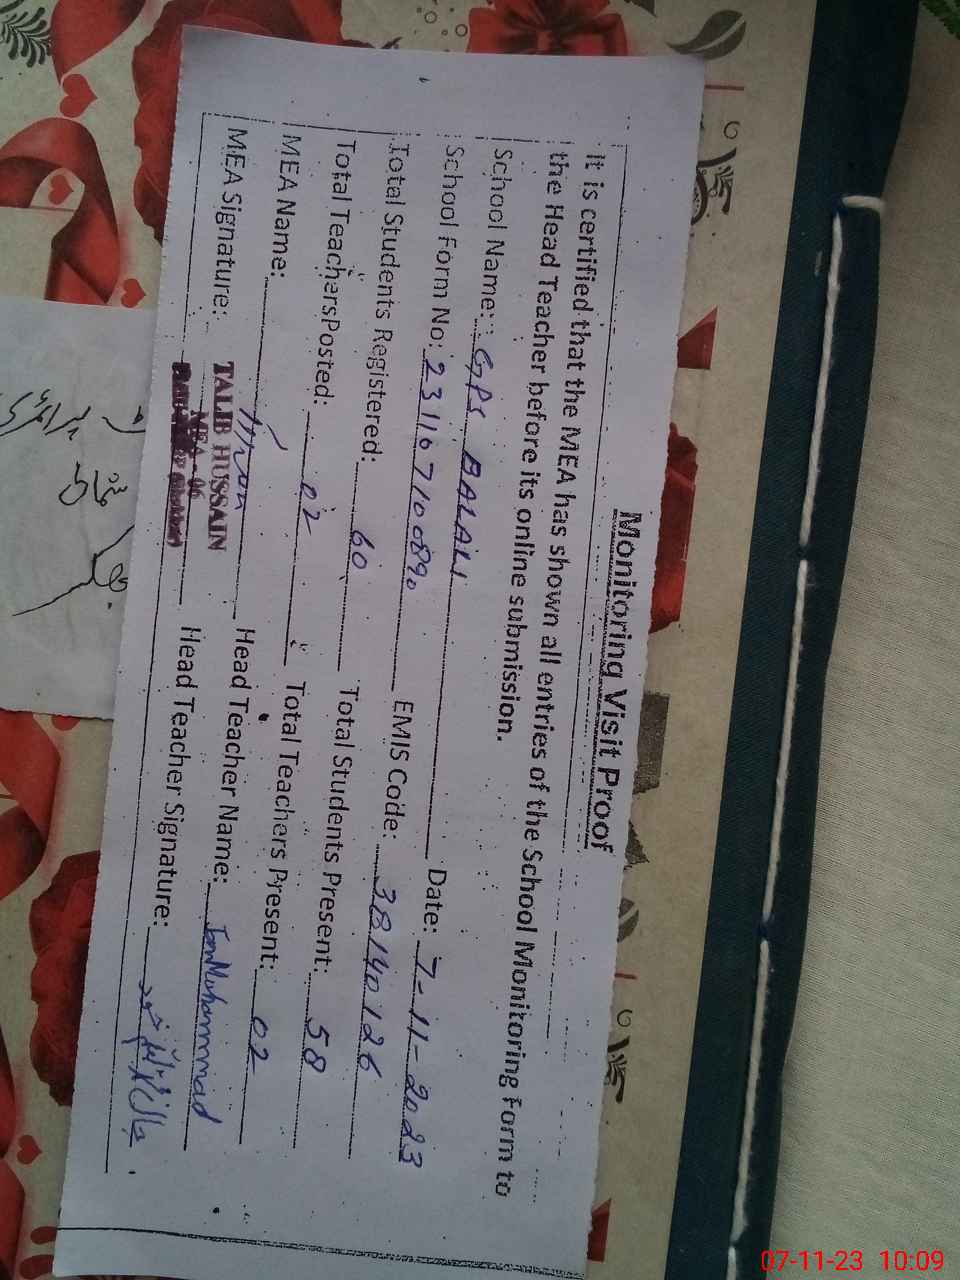 Monitoring Visit Proof
It is certified that the MEA has shown all entries of the School Monitoring Form to
the Head Teacher before its online submission.
School Name: GPS BALALI Date: 7-11-2023
School Form No: 231167100890 EMIS Code: 38140126
Total Students Registered: 60 Total Students Present: 58
Total Teachers Posted: 02 Total Teachers Present: 02
MEA Name: Head Teacher Name: Muhammad
MEA Signature: Head Teacher Signature:
TALIB HUSSAIN
MEA - 06
07-11-23 10:09